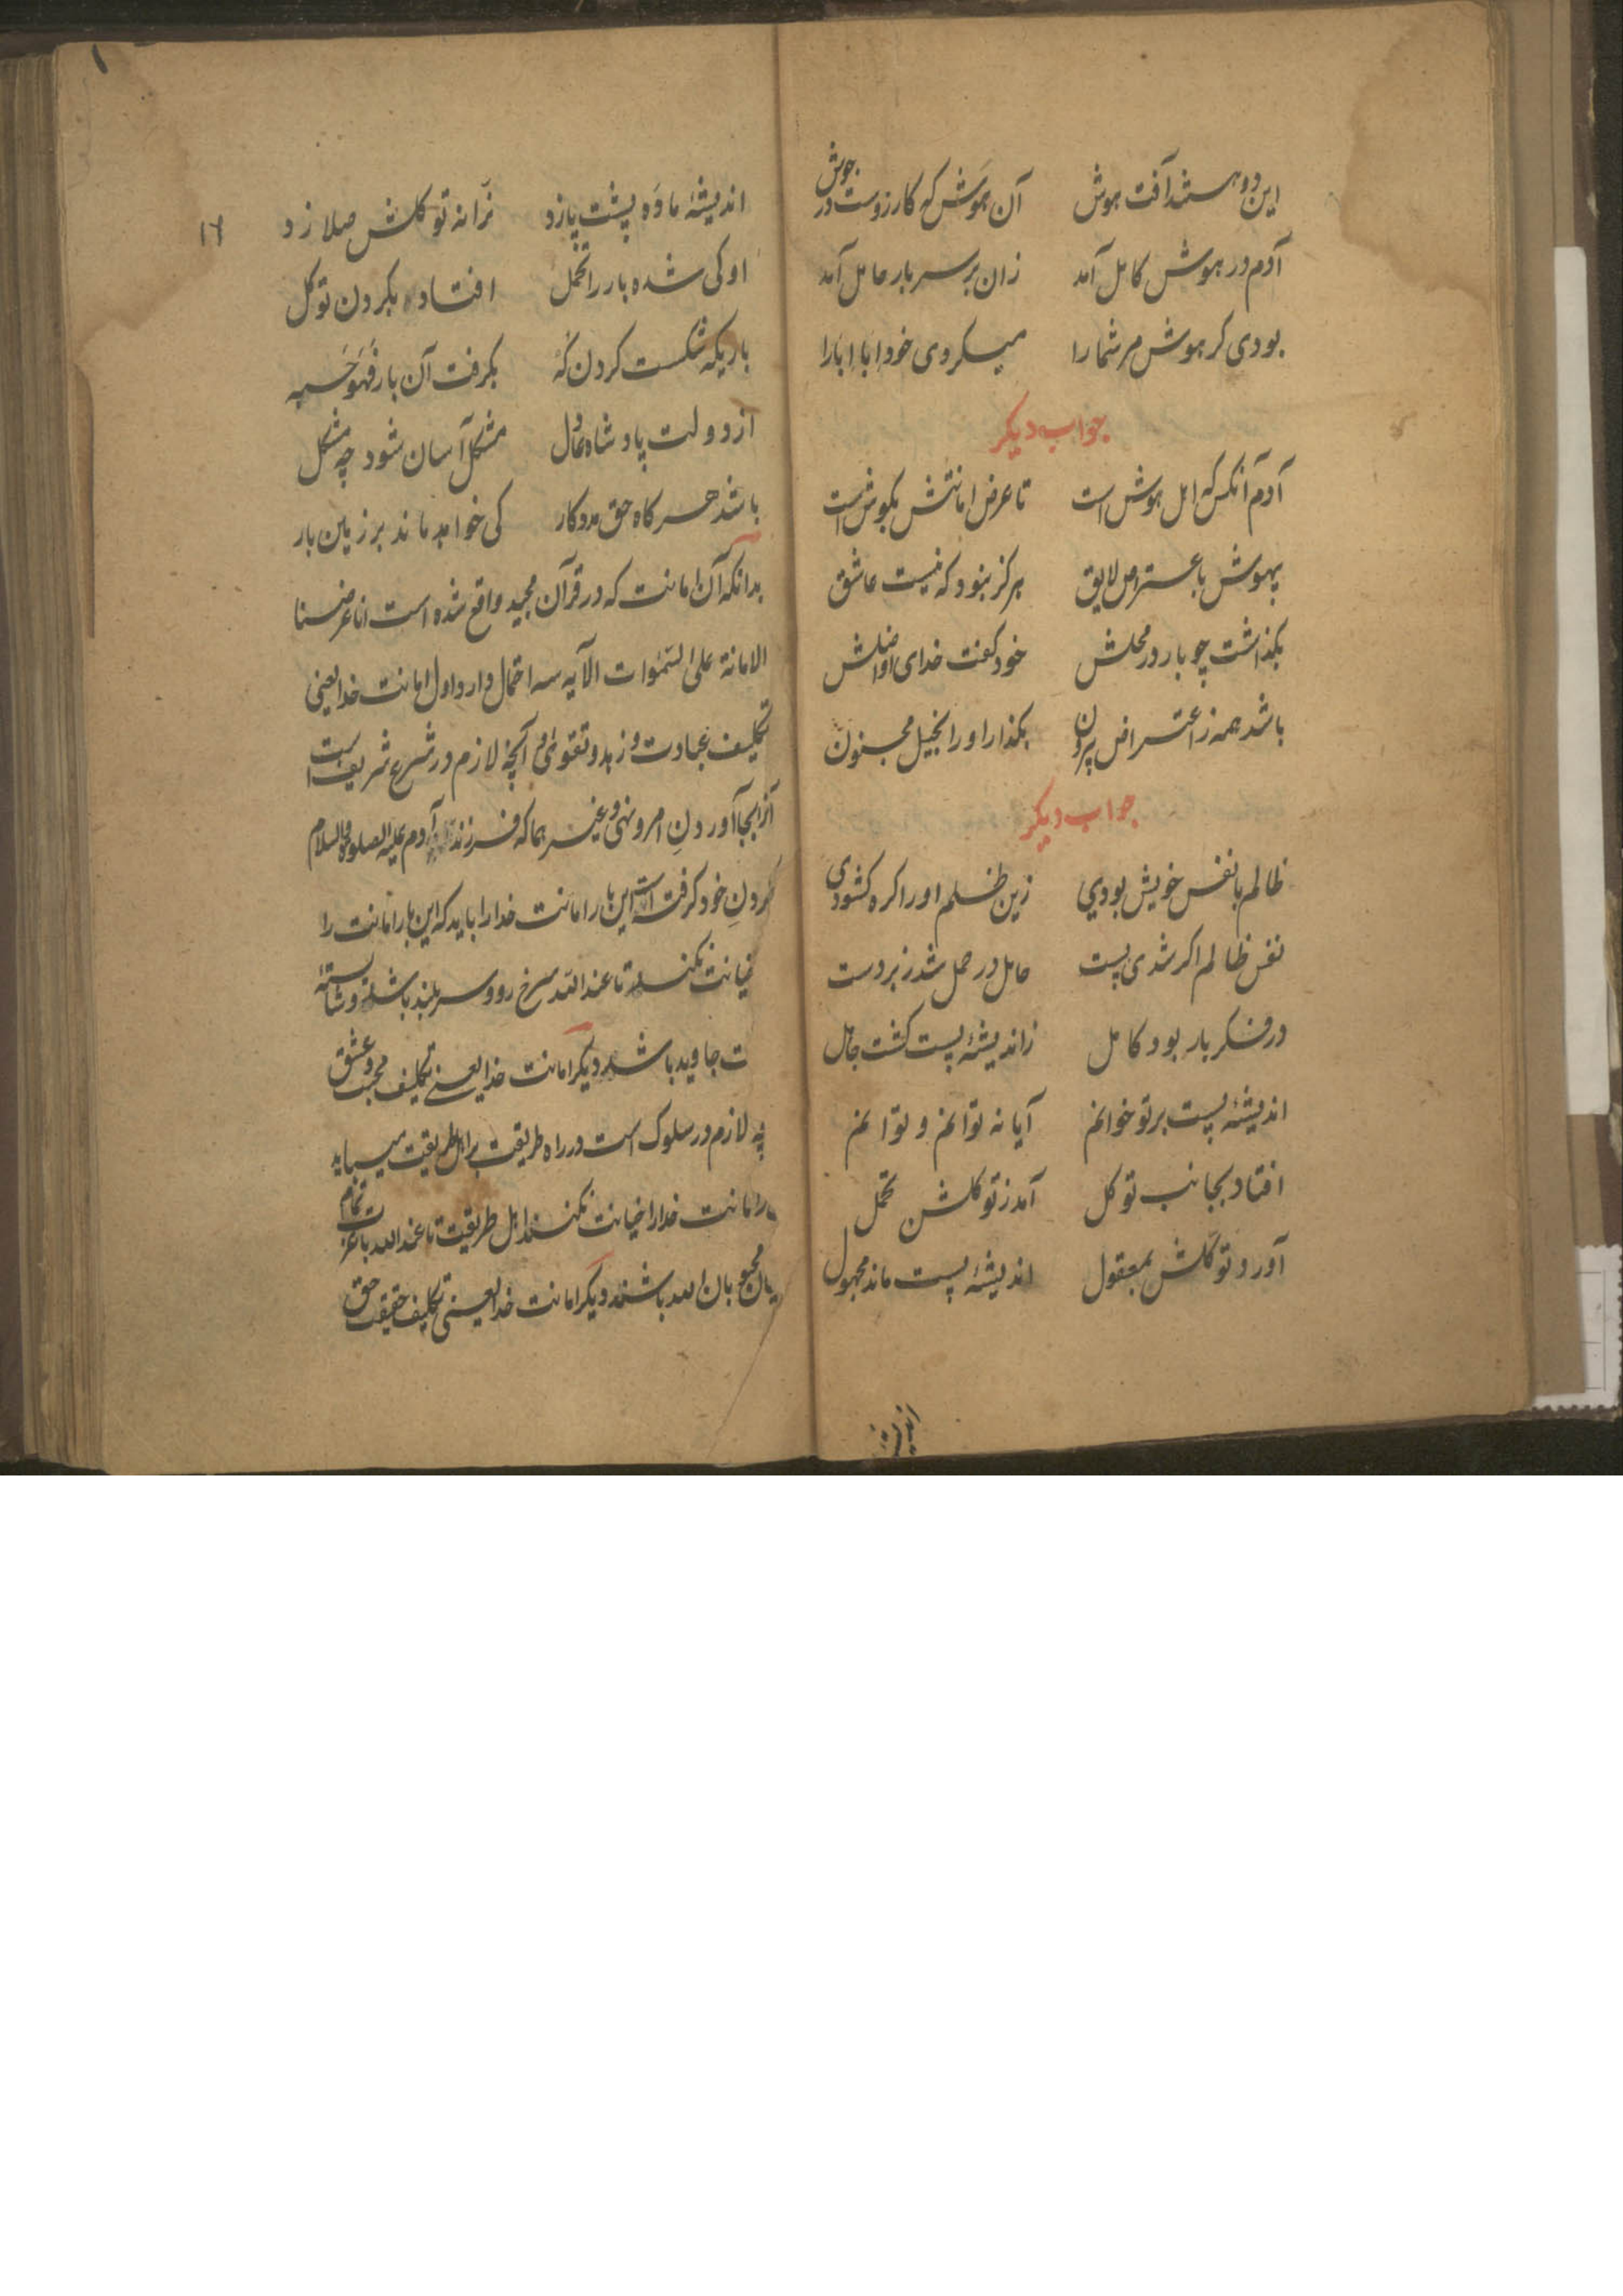 این دو هستند آفت هوش آن هوش که کارزوست در جوش
آدم در هوش کامل آمد زان بر سر بار حامل آمد
بودی کر هوش مر شما را میکردی خود ابا ابا را
جواب دیکر
آدم آنکس که اهل هوش است تا عرض امانتش بکوش است
بیهوش باعتراض لایق هرکز نبود که نیست عاشق
بکذاشت چو بار در محلش خود کفت خدای
باشد همه ز اعتراض بیرون بکذار او را بخیل مجنون
جواب دیکر
ظالم با نفس خویش بودی زین ظلم او را کره کشودی
نفس ظالم اکر شدی پست حامل در حمل شد زبردست
در فکر بار بود کامل ز اندیشهٔ پست کشت جاهل
اندیشهٔ پست بر تو خوانم آیا نه توانم و توانم
افتاد بجانب توکل آمد ز توکلش تحمل
آورد توکلش بمعقول اندیشهٔ پست ماند مجهول
اندیشه
۱۶
اندیشهٔ ماده پشت پا زد نرّانه توکلش صلا زد
او کی شده بار را تحمل افتاده بکردن توکل
باریکه شکست کردن که بکرفت آن بار فهو حسبه
از دولت پادشاه عادل مشکل آسان شود چه مشکل
باشد هر کاه حق مددکار کی خواهد ماند بر زمین بار
بدانکه آن امانت که در قرآن مجید واقع شده است انا عرضنا
الامانة علی السّمٰوات الآیه سه احتمال دارد اول امانت خدا یعنی
تکلیف عبادت و زهد و تقوی و آنچه لازم در شرع شریف است
از بجا آوردنِ امر و نهی و غیرهما که فرزند آدم علیه الصلوة والسلام
کردنِ خود کرفته است این بار امانت خدا را باید که این بار امانت را
خیانت نکند تا عند الله سرخ رو و سر بلند باشد و شایستهٔ
ت جاوید باشد دیکر امانت خدا یعنی تکلیف محبت و عشق
چه لازم در سلوک است در راه طریقت بر اهل طریقت میباید
امانت خدا را خیانت نکنند اهل طریقت تا عند الله با تمام
محبوبان الله باشند دیکر امانت خدا یعنی تکلیف حقیقت حق